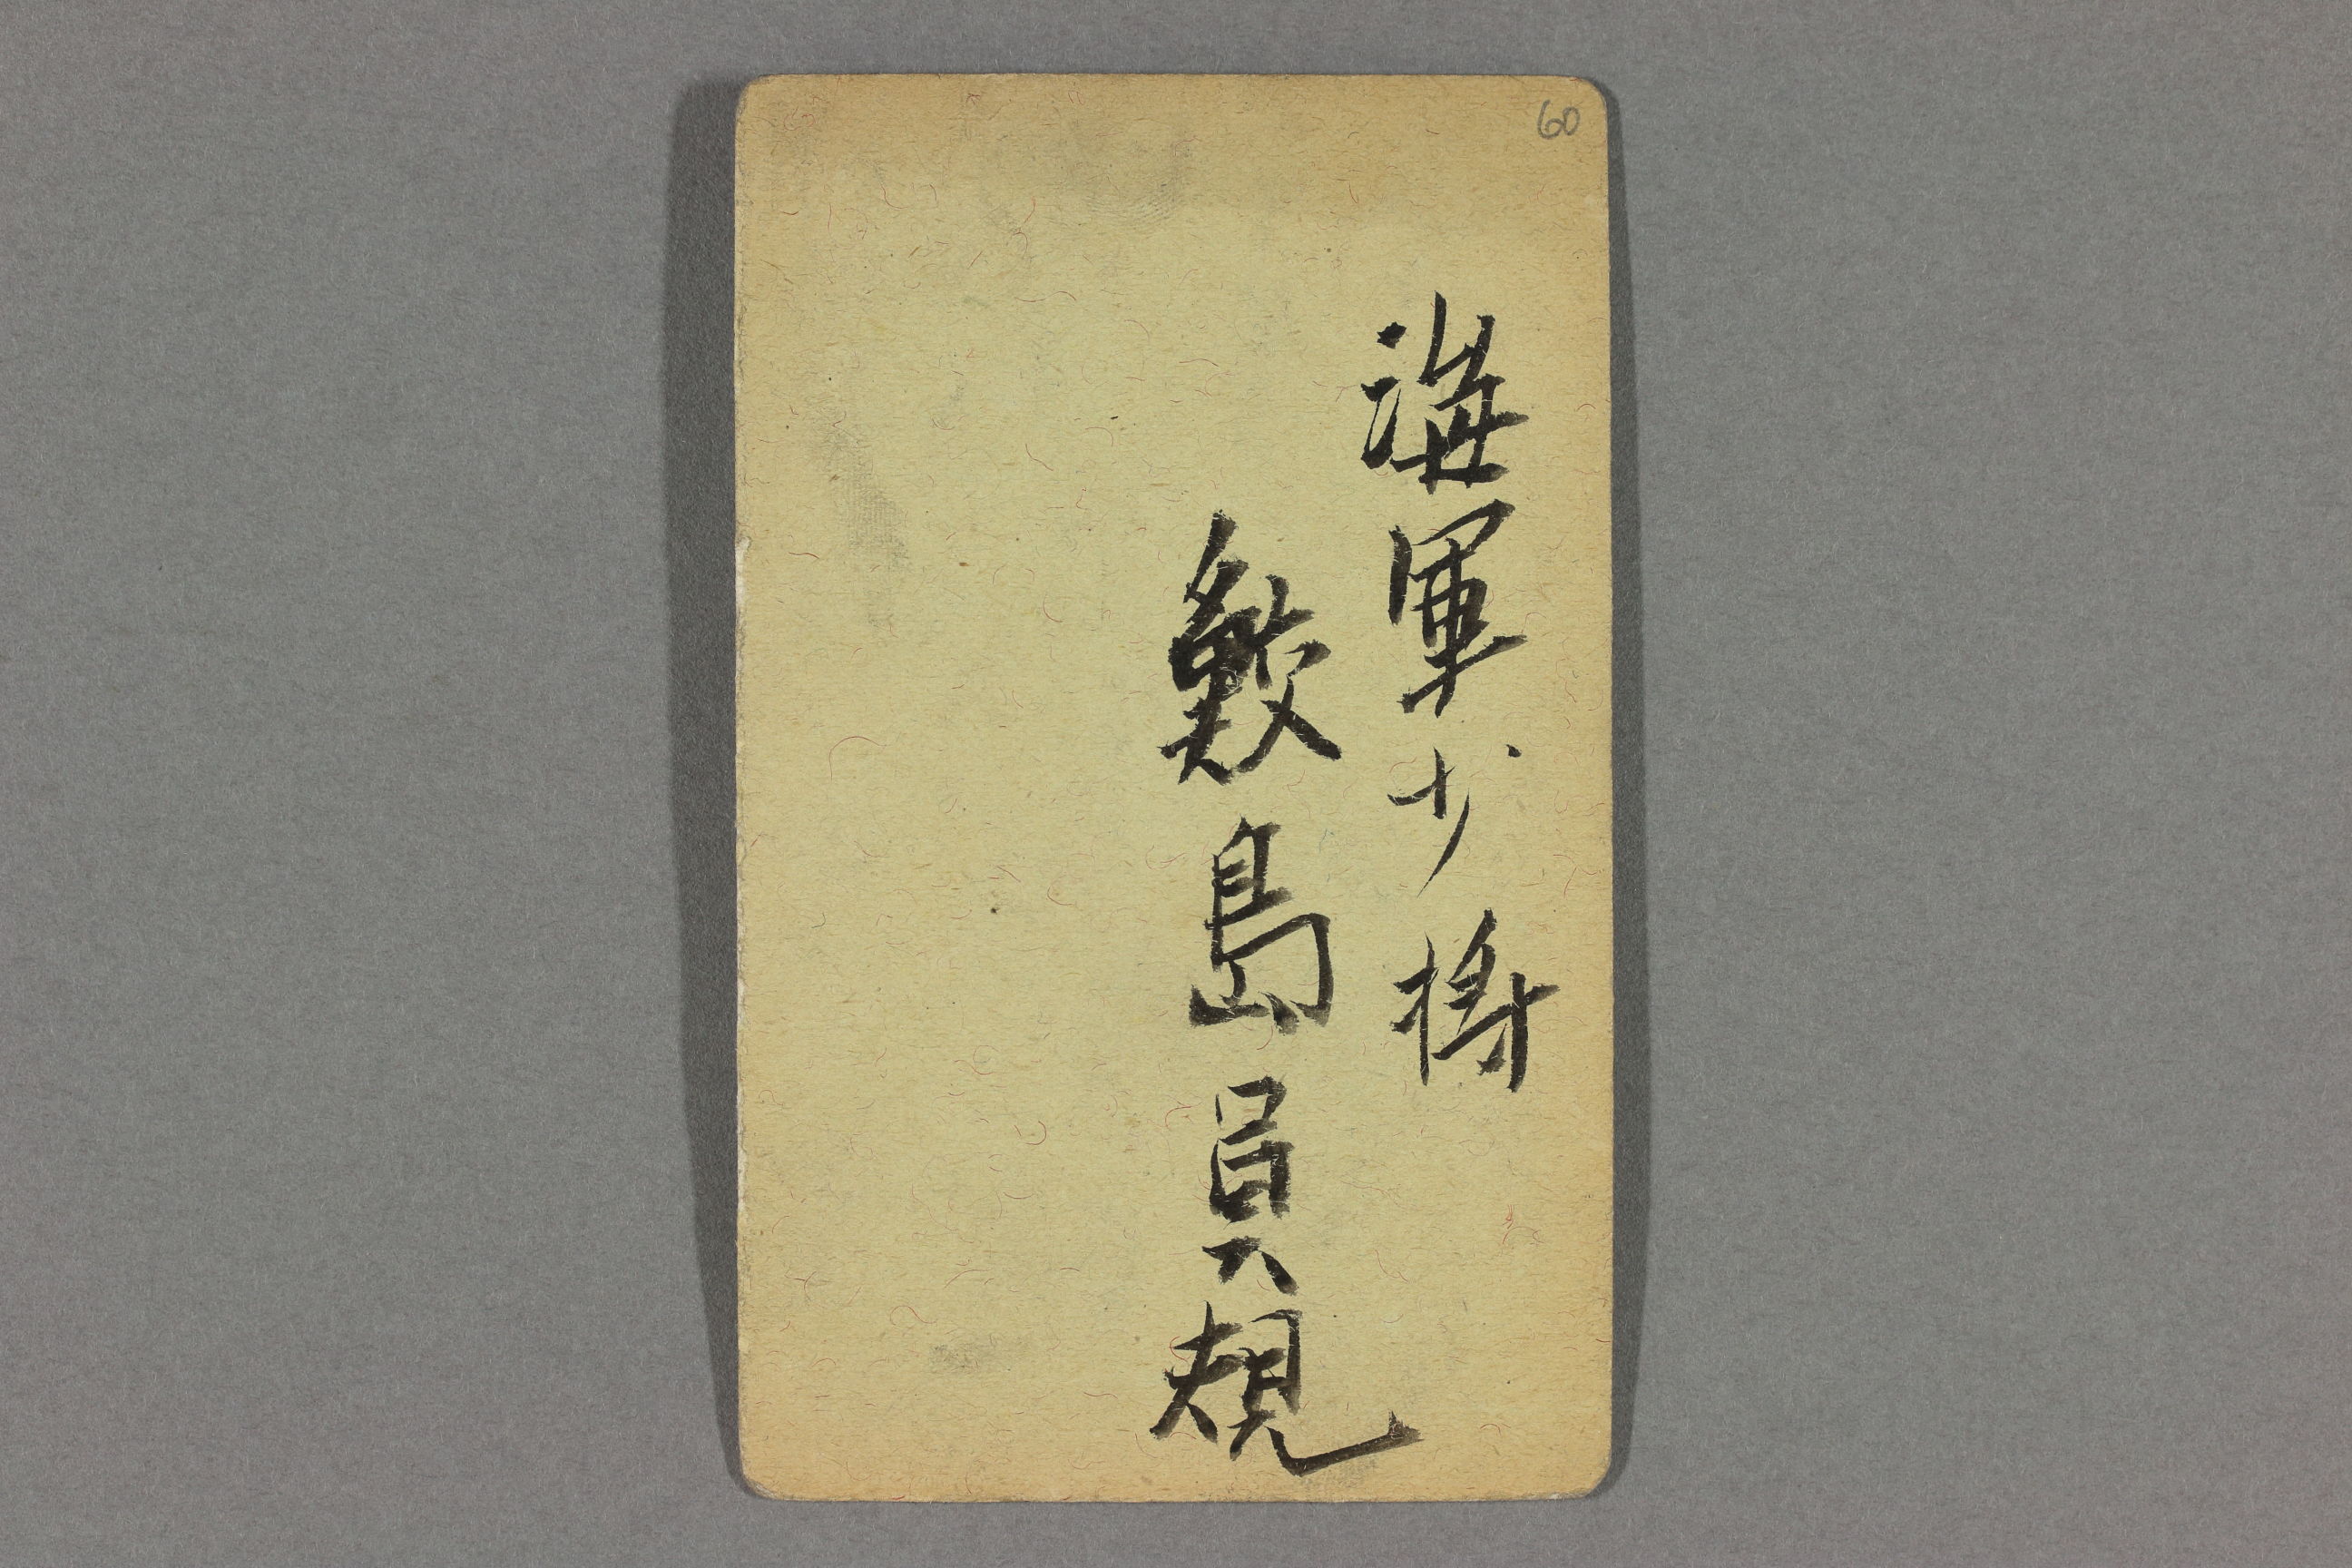 60
海軍少将
鮫島員規